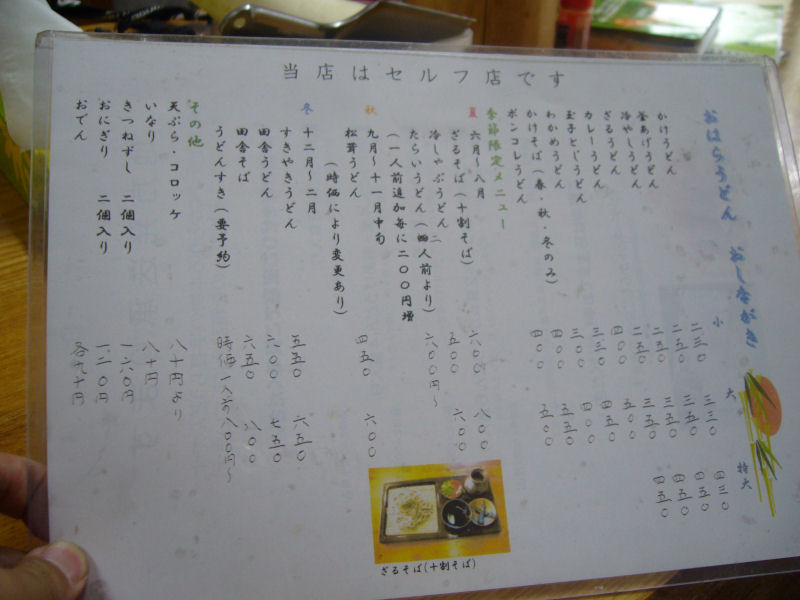 当店はセルフ店です
おはらうどん おしながき
小 大 特大
かけうどん 二三〇 三三〇 四三〇
釜あげうどん 二五〇 三五〇 四五〇
冷やしうどん 二五〇 三五〇 四五〇
ざるうどん 二五〇 三五〇 四五〇
カレーうどん 四〇〇 五〇〇
玉子とじうどん 三三〇 四三〇
わかめうどん 三〇〇 四〇〇
かけそば(春・秋・冬のみ) 四〇〇 五五〇
ポンコレうどん 四〇〇 五〇〇
季節限定メニュー
夏 六月〜八月
ざるそば(十割そば) 六〇〇 八〇〇
冷しゃぶうどん 五〇〇 六〇〇
たらいうどん(二人前より) 六〇〇円〜
(一人前追加毎に二〇〇円増)
秋 九月〜十一月中旬
松茸うどん 四五〇 六〇〇
(時価により変更あり)
冬 十二月〜二月
すきやきうどん 五五〇 六五〇
田舎うどん 六〇〇 七五〇
田舎そば 六五〇 八〇〇
うどんすき(要予約) 時価 一人前八〇〇円〜
その他
天ぷら・コロッケ 八十円より
いなり 八十円
きつねずし 二個入り 一六〇円
おにぎり 二個入り 一二〇円
おでん 各九十円
ざるそば(十割そば)